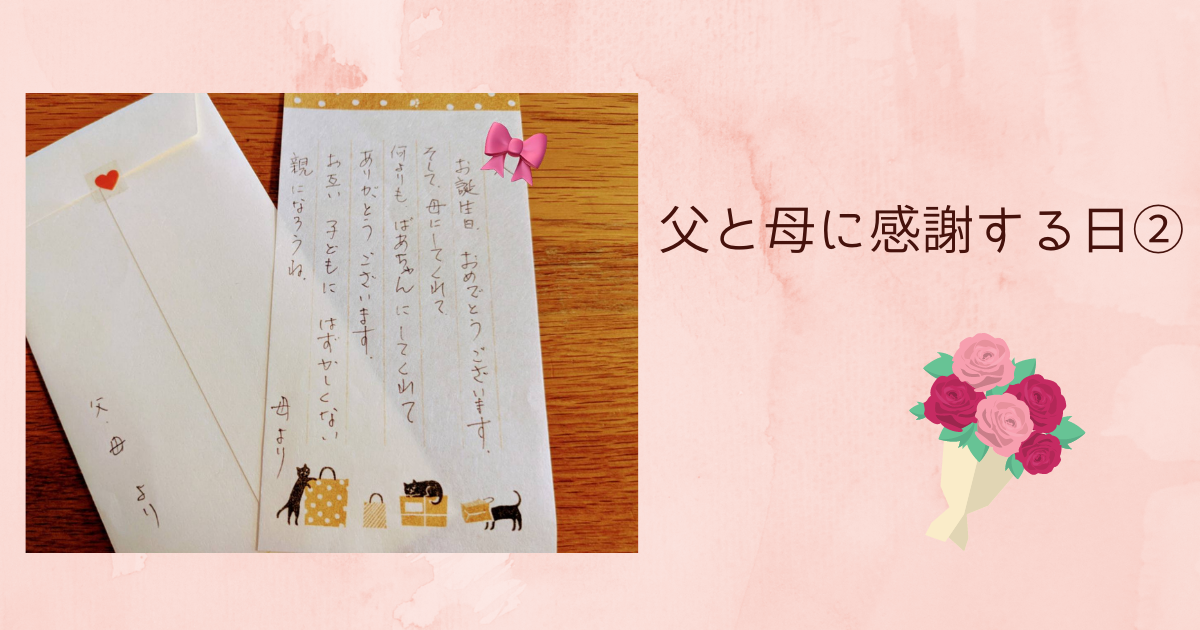 お誕生日 おめでとう ございます。
そして、母にしてくれて
何よりも ばあちゃん にしてくれて
ありがとう ございます。
お互い 子どもに はずかしくない
親になろうね。
母より
父、母 より
父と母に感謝する日②